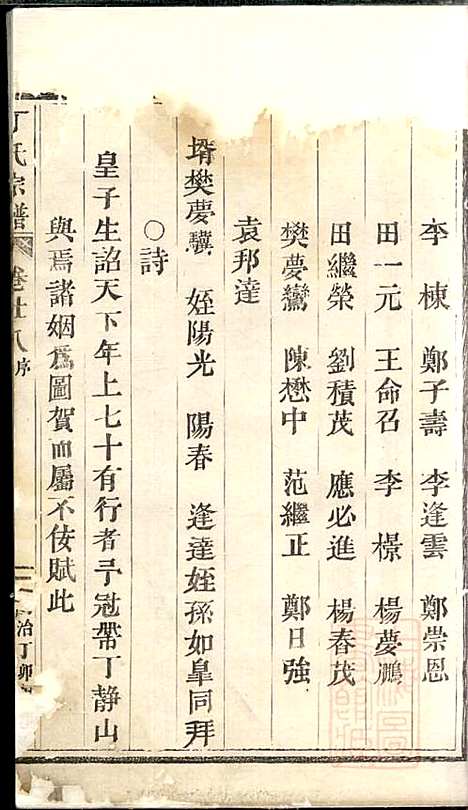 李 棟 鄭子壽 李逢雲 鄭崇恩
田一元 王命召 李 憬 楊夢鵬
田繼榮 劉積茂 應必進 楊春茂
樊夢鸞 陳懋中 范繼正 鄭日強
袁邦達
壻樊夢驥 姪陽光 陽春 逢達姪孫如臯同拜
○詩
皇子生詔天下年上七十有行者予冠帶丁静山
與焉諸姻爲圖賀而屬不佞賦此
丁氏宗譜 卷廿八 序
治丁卯